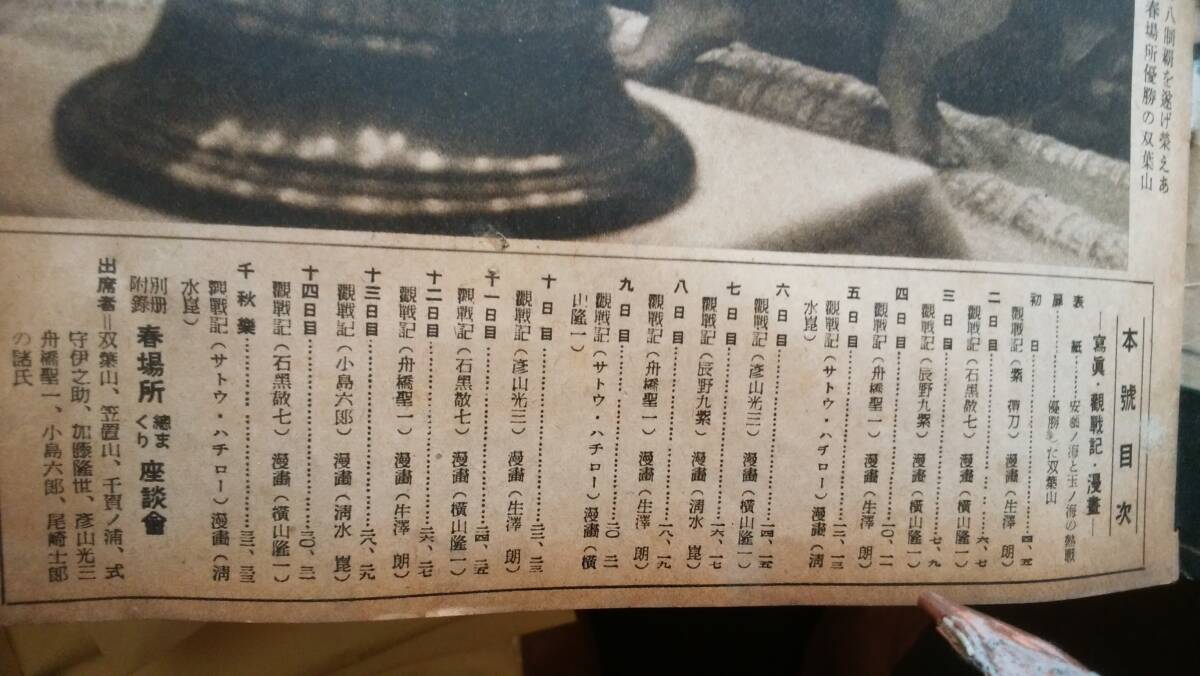 八制覇を遂げ榮えあ
春場所優勝の双葉山
本號目次
―寫眞・觀戰記・漫畫―
表紙…………安藝ノ海と玉ノ海の熱戰
扉…………優勝した双葉山
初日…………四、五
觀戰記（紫　　刀）漫畫（生澤　朗）
二日目…………六、七
觀戰記（石黑敬七）漫畫（横山隆一）
三日目…………七、九
觀戰記（辰野九紫）漫畫（横山隆一）
四日目…………一〇、一一
觀戰記（舟橋聖一）漫畫（生澤　朗）
五日目…………一二、一三
觀戰記（サトウ・ハチロー）漫畫（淸
水崑）
六日目…………一四、一五
觀戰記（彥山光三）漫畫（横山隆一）
七日目…………一六、一七
觀戰記（辰野九紫）漫畫（淸水　崑）
八日目…………一八、一九
觀戰記（舟橋聖一）漫畫（生澤　朗）
九日目…………二〇、二一
觀戰記（サトウ・ハチロー）漫畫（横
山隆一）
十日目…………二二、二三
觀戰記（彥山光三）漫畫（生澤　朗）
十一日目…………二四、二五
觀戰記（石黑敬七）漫畫（横山隆一）
十二日目…………二六、二七
觀戰記（舟橋聖一）漫畫（生澤　朗）
十三日目…………二八、二九
觀戰記（小島六郎）漫畫（淸水　崑）
十四日目…………三〇、三一
觀戰記（石黑敬七）漫畫（横山隆一）
千秋樂…………三二、三三
觀戰記（サトウ・ハチロー）漫畫（淸
水崑）
別册附錄　春場所總まくり座談會
出席者＝双葉山、笠置山、千賀ノ浦、式
守伊之助、加藤隆世、彥山光三
舟橋聖一、小島六郎、尾崎士郎
の諸氏